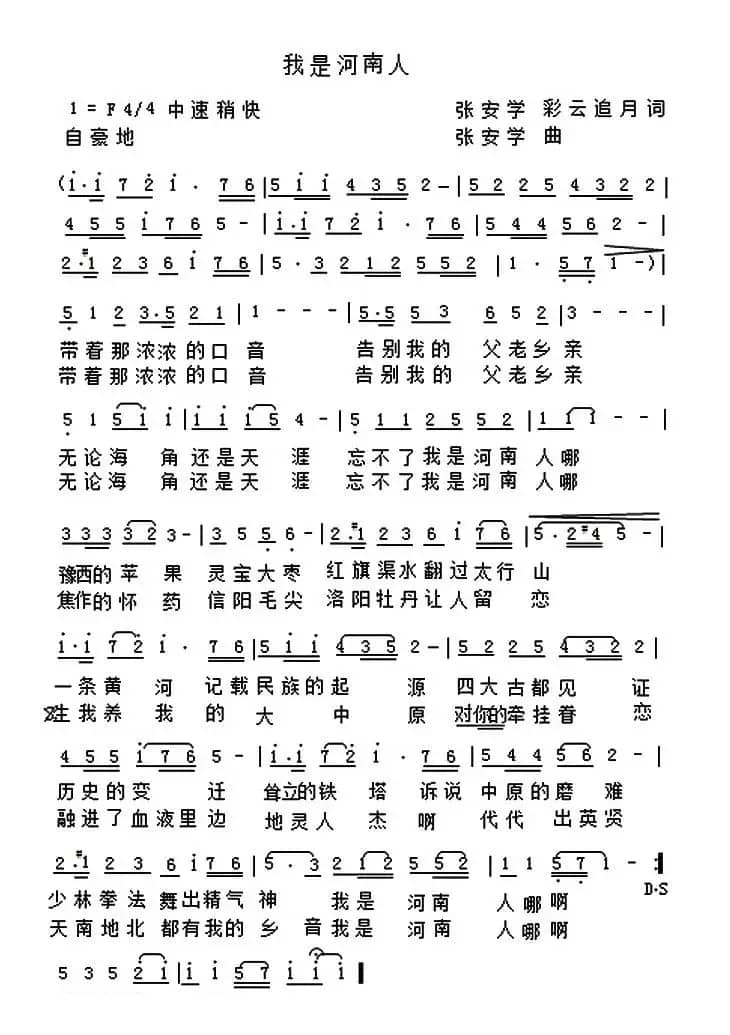 我是河南人
1=F 4/4 中速稍快 张安学 彩云追月词
自豪地 张安学 曲
(i·i 7 2 i · 7 6 |5 i i 4 3 5 2 – |5 2 2 5 4 3 2 2 |
4 5 5 i 7 6 5 – |i·i 7 2 i · 7 6 |5 4 4 5 6 2 – |
2·#1 2 3 6 i 7 6 |5 · 3 2 1 2 5 5 2 |1 · 5 7 1 –)|
5 1 2 3·5 2 1 |1 – – – |5·5 5 3 6 5 2 |3 – – – |
带着那浓浓的口音 告别我的 父老乡亲
带着那浓浓的口音 告别我的 父老乡亲
5 1 5 i i |i i i i 5 4 – |5 1 1 2 5 5 2 |1 1 1 – – |
无论海 角还是天 涯 忘不了我是河南 人哪
无论海 角还是天 涯 忘不了我是河南 人哪
3 3 3 3 2 3 – |3 5 5 6 – |2·#1 2 3 6 i 7 6 |5·2 #4 5 – |
豫西的 苹 果 灵宝大枣 红旗渠水翻过太行 山
焦作的 怀 药 信阳毛尖 洛阳牡丹让人留 恋
i·i 7 2 i · 7 6 |5 i i 4 3 5 2 – |5 2 2 5 4 3 2 2 |
一条黄 河 记载民族的起 源 四大古都见 证
生我养 我 的 大 中 原 对你的牵挂眷 恋
4 5 5 i 7 6 5 – |i·i 7 2 i · 7 6 |5 4 4 5 6 2 – |
历史的变 迁 耸立的铁 塔 诉说 中原的磨 难
融进了血液里边 地灵人 杰 啊 代代 出英贤
2·#1 2 3 6 i 7 6 |5 · 3 2 1 2 5 5 2 |1 1 5 7 1 – :‖
D·S
少林拳法 舞出精气神 我是 河南 人哪啊
天南地北 都有我的 乡 音我是 河南 人哪啊
5 3 5 2 i |i i 5 7 i i i ‖